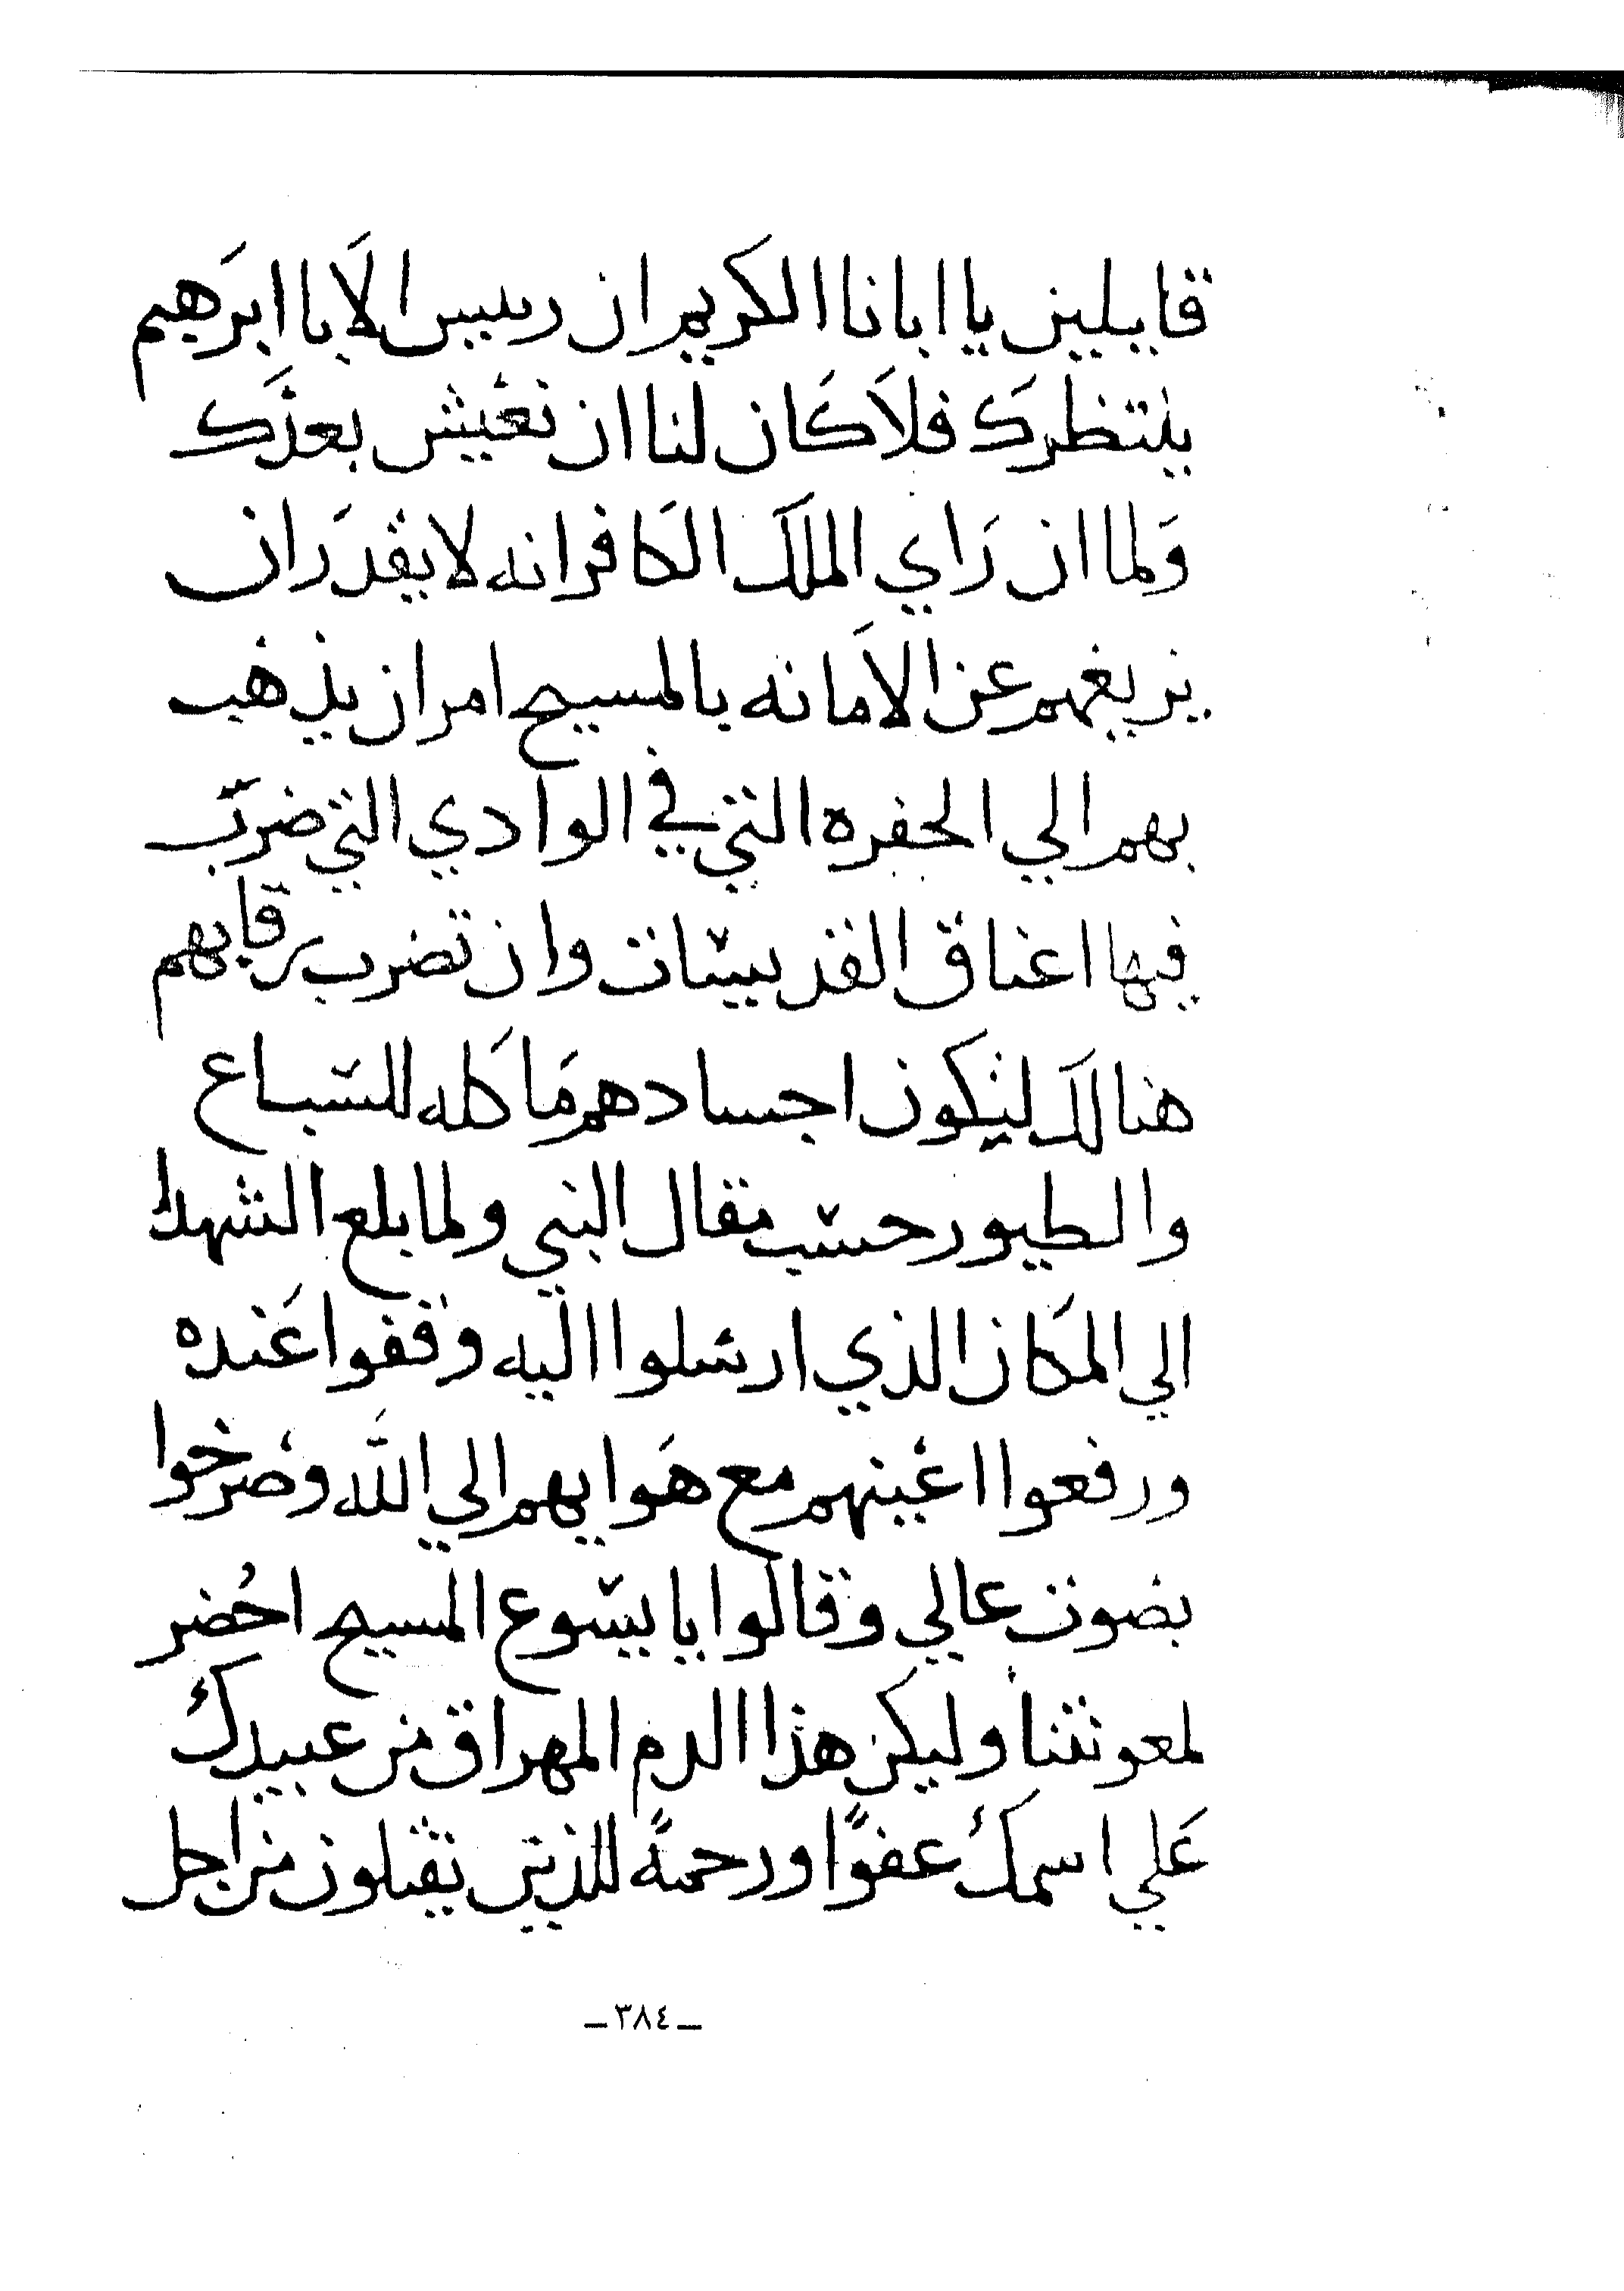 قايلين يا ابانا الكريم ان رييس الاَبا ابرَهيم
ينتظرك فلاَ كَان لنا ان نعيش بعدَك
وَلما ان رَاي الملَك الكَافر انه لا يقدرَ ان
يزيغهم عن الاَمانه بالمسيح امر ان يذهب
بهم الي الحفره التي في الوادي التي ضرب
فيها اعناق القديسات وان تضرب رقابهم
هنالَك ليكون اجسادهم مَاكَله للسباع
والطيور حسب مقال النبي ولما بلغ الشهدا
الي المكَان الذي ارسلوا اليه وقفوا عَنده
ورفعوا اعينهم مع هَوايهم الي اللَّه وصرخوا
بصوت عالي وقالوا يا يسوع المسيح احُضر
لمعونتنا وليكن هذا الدم المهراق من عبيدك
عَلي اسمك عفوًا ورحمةً للذين يقتلون من اجل
ـ ٣٨٤ ـ